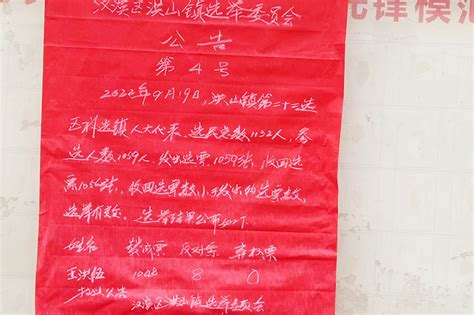 汉滨区洪山镇选举委员会
锋模
公告
第4号
2022年9月19日,洪山镇第二十三选
区补选镇人大代表,选民总数1132人,参
选人数1059人,发出选票1059张,收回选
票1056张,收回选票数小于发出的选票数,
选举有效。选举结果公布如下
姓名 赞成票 反对票 弃权票
王洪伍 1048 8 0
特此公告
汉滨区洪山镇选举委员会